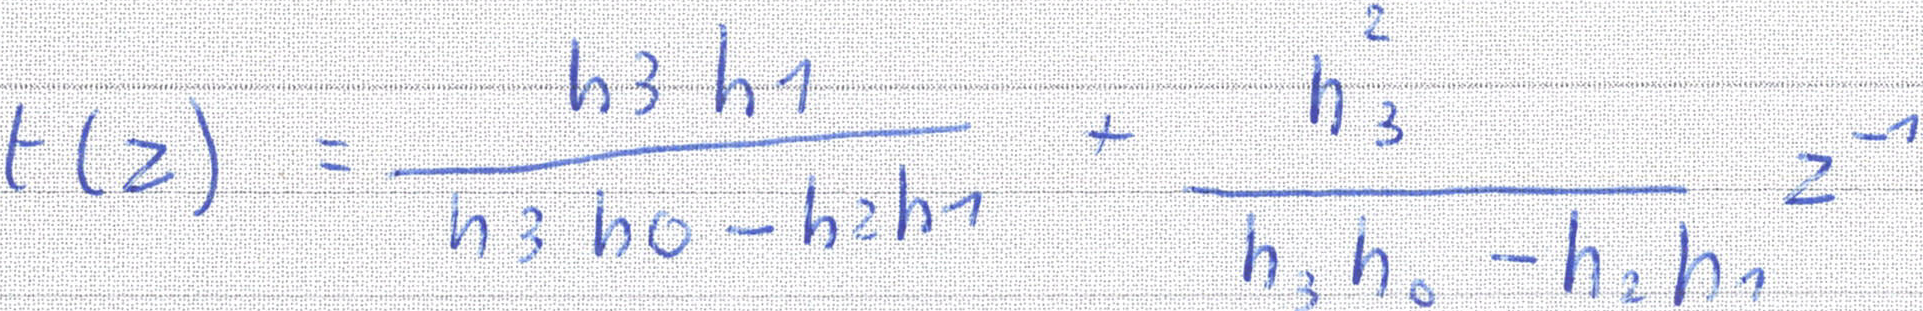 t(z) = \frac{h_3 h_1}{h_3 h_0 - h_2 h_1} + \frac{h_3^2}{h_3 h_0 - h_2 h_1} z^{-1}